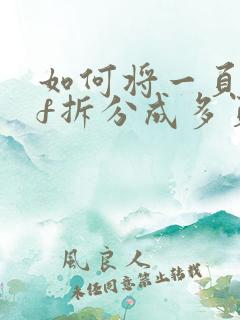 如何将一页
f拆分成多
风良人
未经同意禁止转载